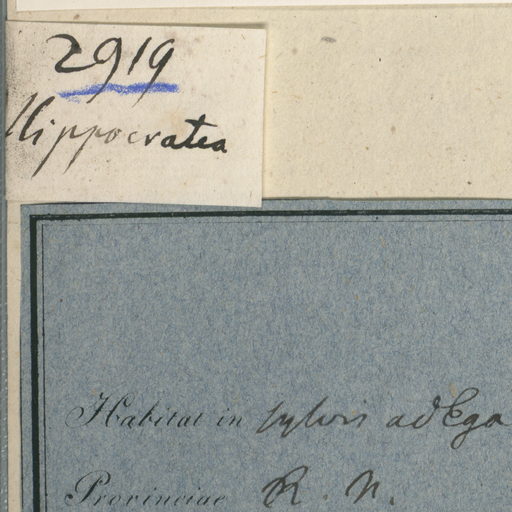 2919
Hippocratea
Habitat in sylvis ad Ega
Provinciae R. N.